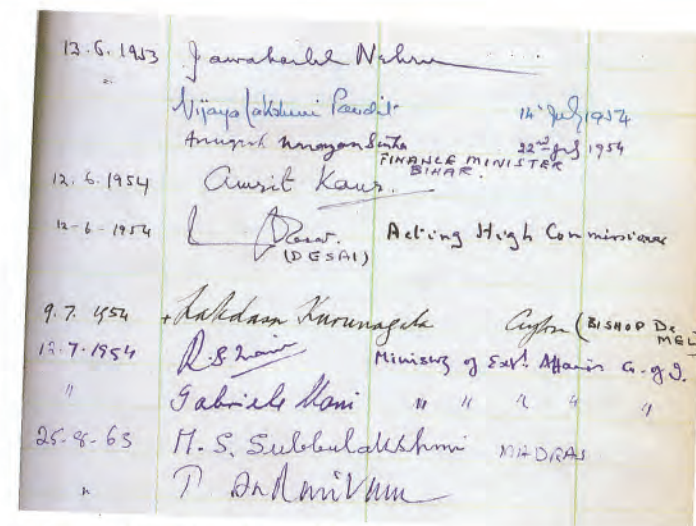 13.6.1953 Jawaharlal Nehru
" Vijaya Lakshmi Pandit 14th July 1954
Anugrah Narayan Sinha 22nd July 1954
FINANCE MINISTER
BIHAR.
12.6.1954 Amrit Kaur.
12-6-1954 Desai. Acting High Commissioner
(DESAI)
9.7.1954 + Lakdasa Kurunagala Ceylon (BISHOP De
MEL
12.7.1954 Ministry of Ext. Affairs G. of I.
" Gabriele Mani " " " " "
25-8-63 M. S. Subbulakshmi MADRAS
" T